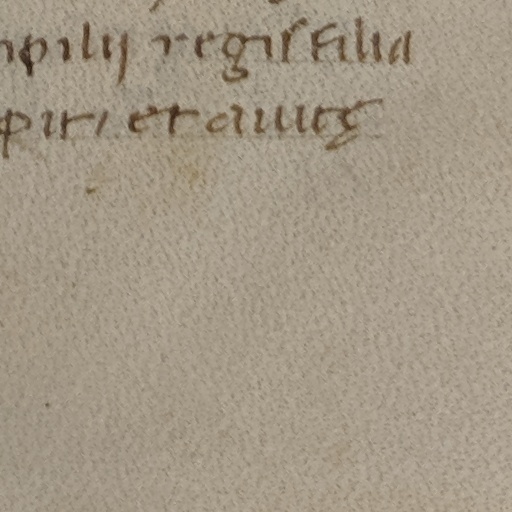 mpilij regis filia
piri et auus